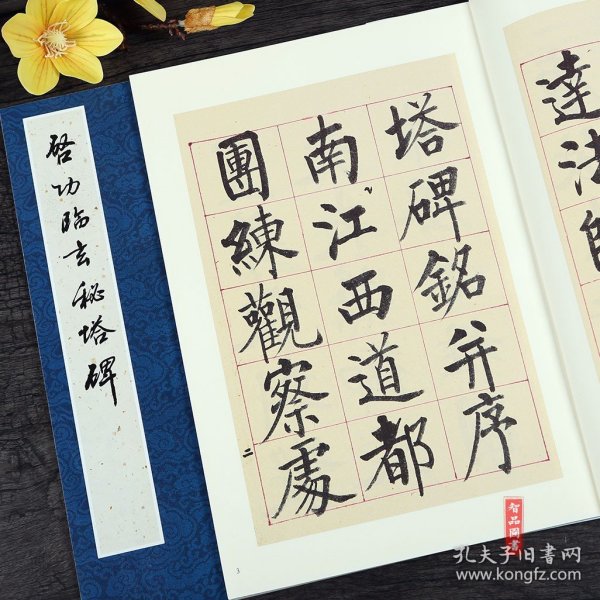 启功临玄秘塔碑
達法師
塔碑銘并序
南江西道都
團練觀察處
二
3
智品圖書
孔夫子旧书网
www.kongfz.com